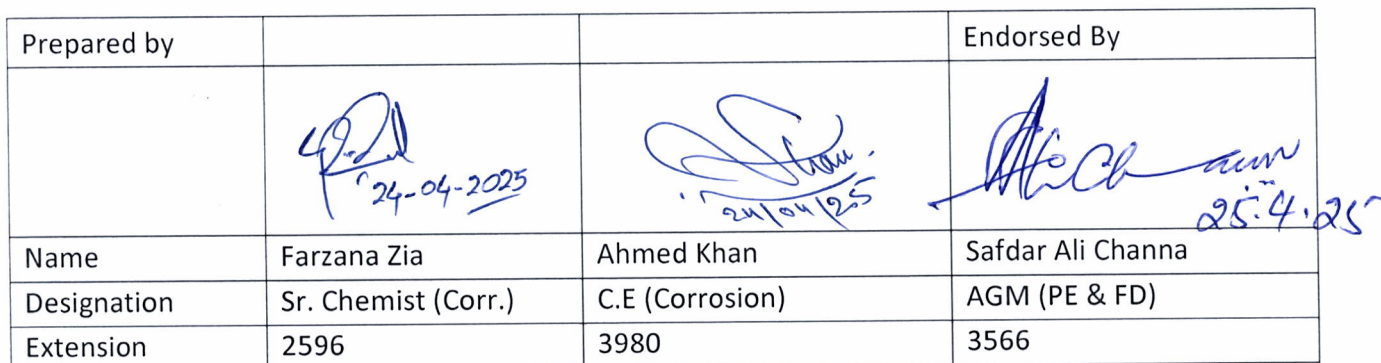 Prepared by Endorsed By
24-04-2025 24/04/25 25.4.25
Name Farzana Zia Ahmed Khan Safdar Ali Channa
Designation Sr. Chemist (Corr.) C.E (Corrosion) AGM (PE & FD)
Extension 2596 3980 3566